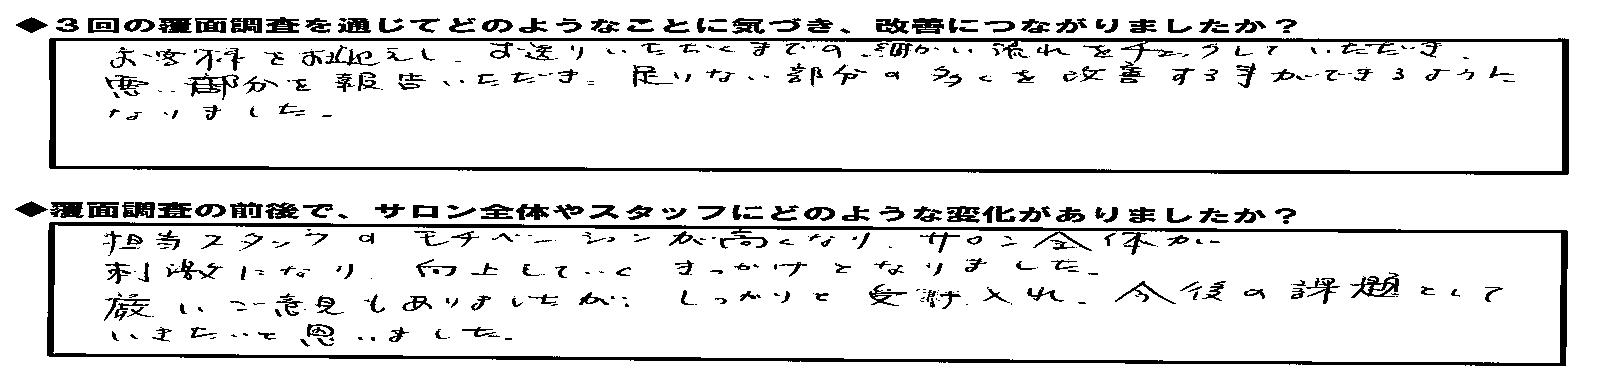 ◆3回の覆面調査を通じてどのようなことに気づき、改善につながりましたか？
お客様をお迎えし、お送りいただくまでの、細かい流れをチェックしていただき、
悪い部分を報告いただき、足りない部分の多くを改善する事ができるように
なりました。
◆覆面調査の前後で、サロン全体やスタッフにどのような変化がありましたか？
担当スタッフのモチベーションが高くなり、サロン全体が
刺激になり、向上していくきっかけとなりました。
厳しいご意見もありましたが、しっかりと受け入れ、今後の課題として
いきたいと思いました。